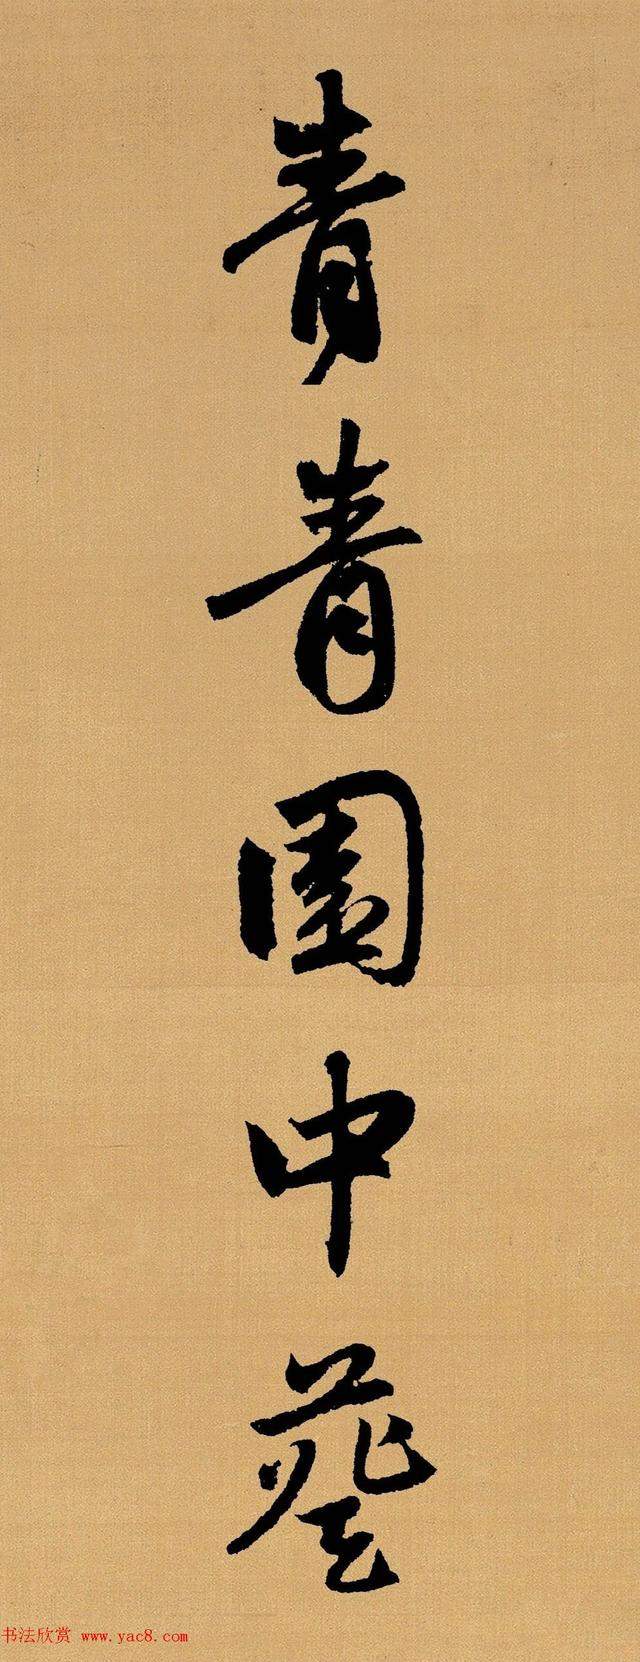 青青園中葵
书法欣赏 www.yac8.com